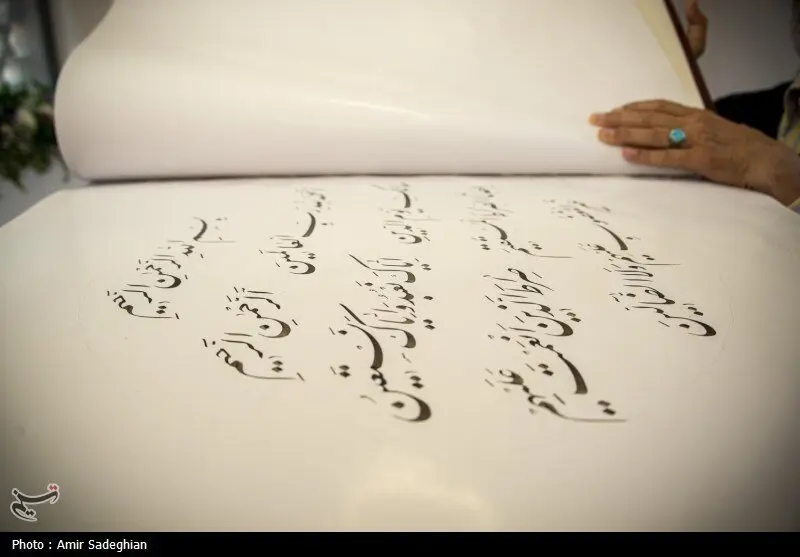 بسم الله الرحمن الرحیم
الحمد لله رب العالمین الرحمن الرحیم
مالک یوم الدین ایاک نعبد و ایاک نستعین
اهدنا الصراط المستقیم صراط الذین انعمت علیهم
غیر المغضوب علیهم و لا الضالین
تسنیم
Photo : Amir Sadeghian